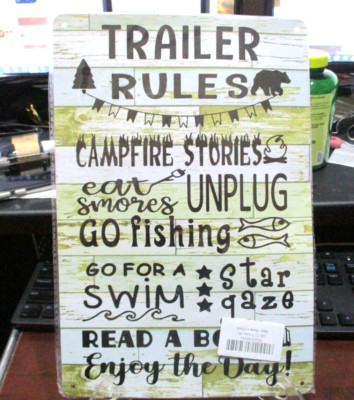 TRAILER
RULES
CAMPFIRE STORIES
eat
smores UNPLUG
GO fishing
GO FOR A
SWIM
star
gaze
READ A
Enjoy the Day!